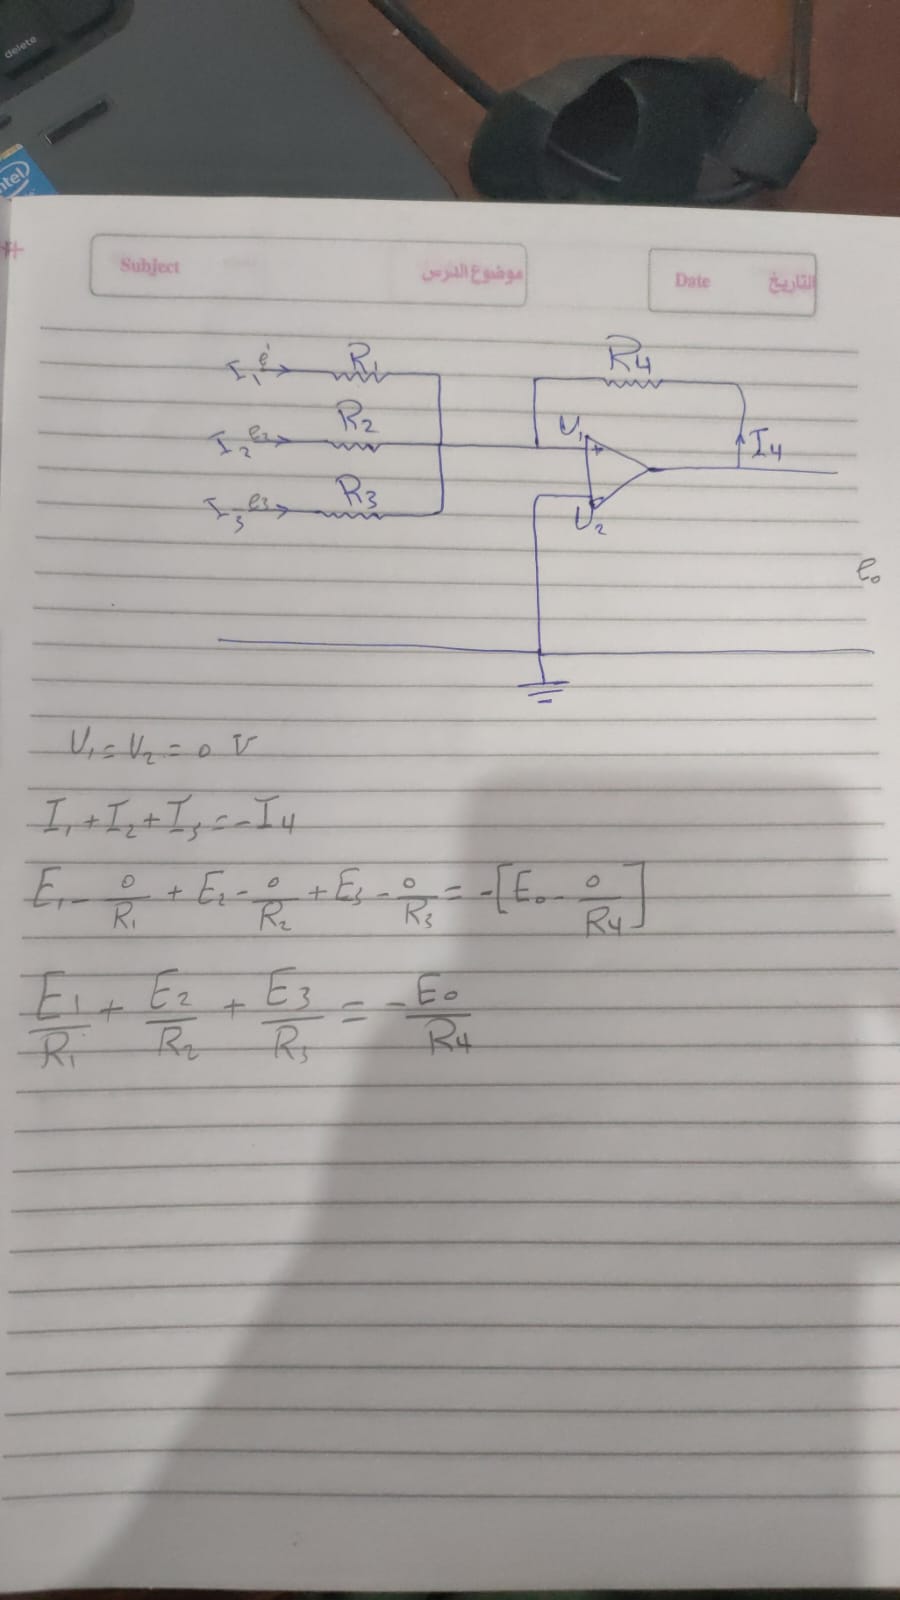 delete
intel
Subject موضوع الدرس
Date التاريخ
I₁ e₁ R₁
I₂ e₂ R₂
I₃ e₃ R₃
R₄
U₁ +
I₄
U₂
e₀
U₁ = U₂ = 0 V
I₁ + I₂ + I₃ = - I₄
E₁ - 0/R₁ + E₂ - 0/R₂ + E₃ - 0/R₃ = - [E₀ - 0/R₄]
E1/R₁ + E2/R₂ + E3/R₃ = - E₀/R4